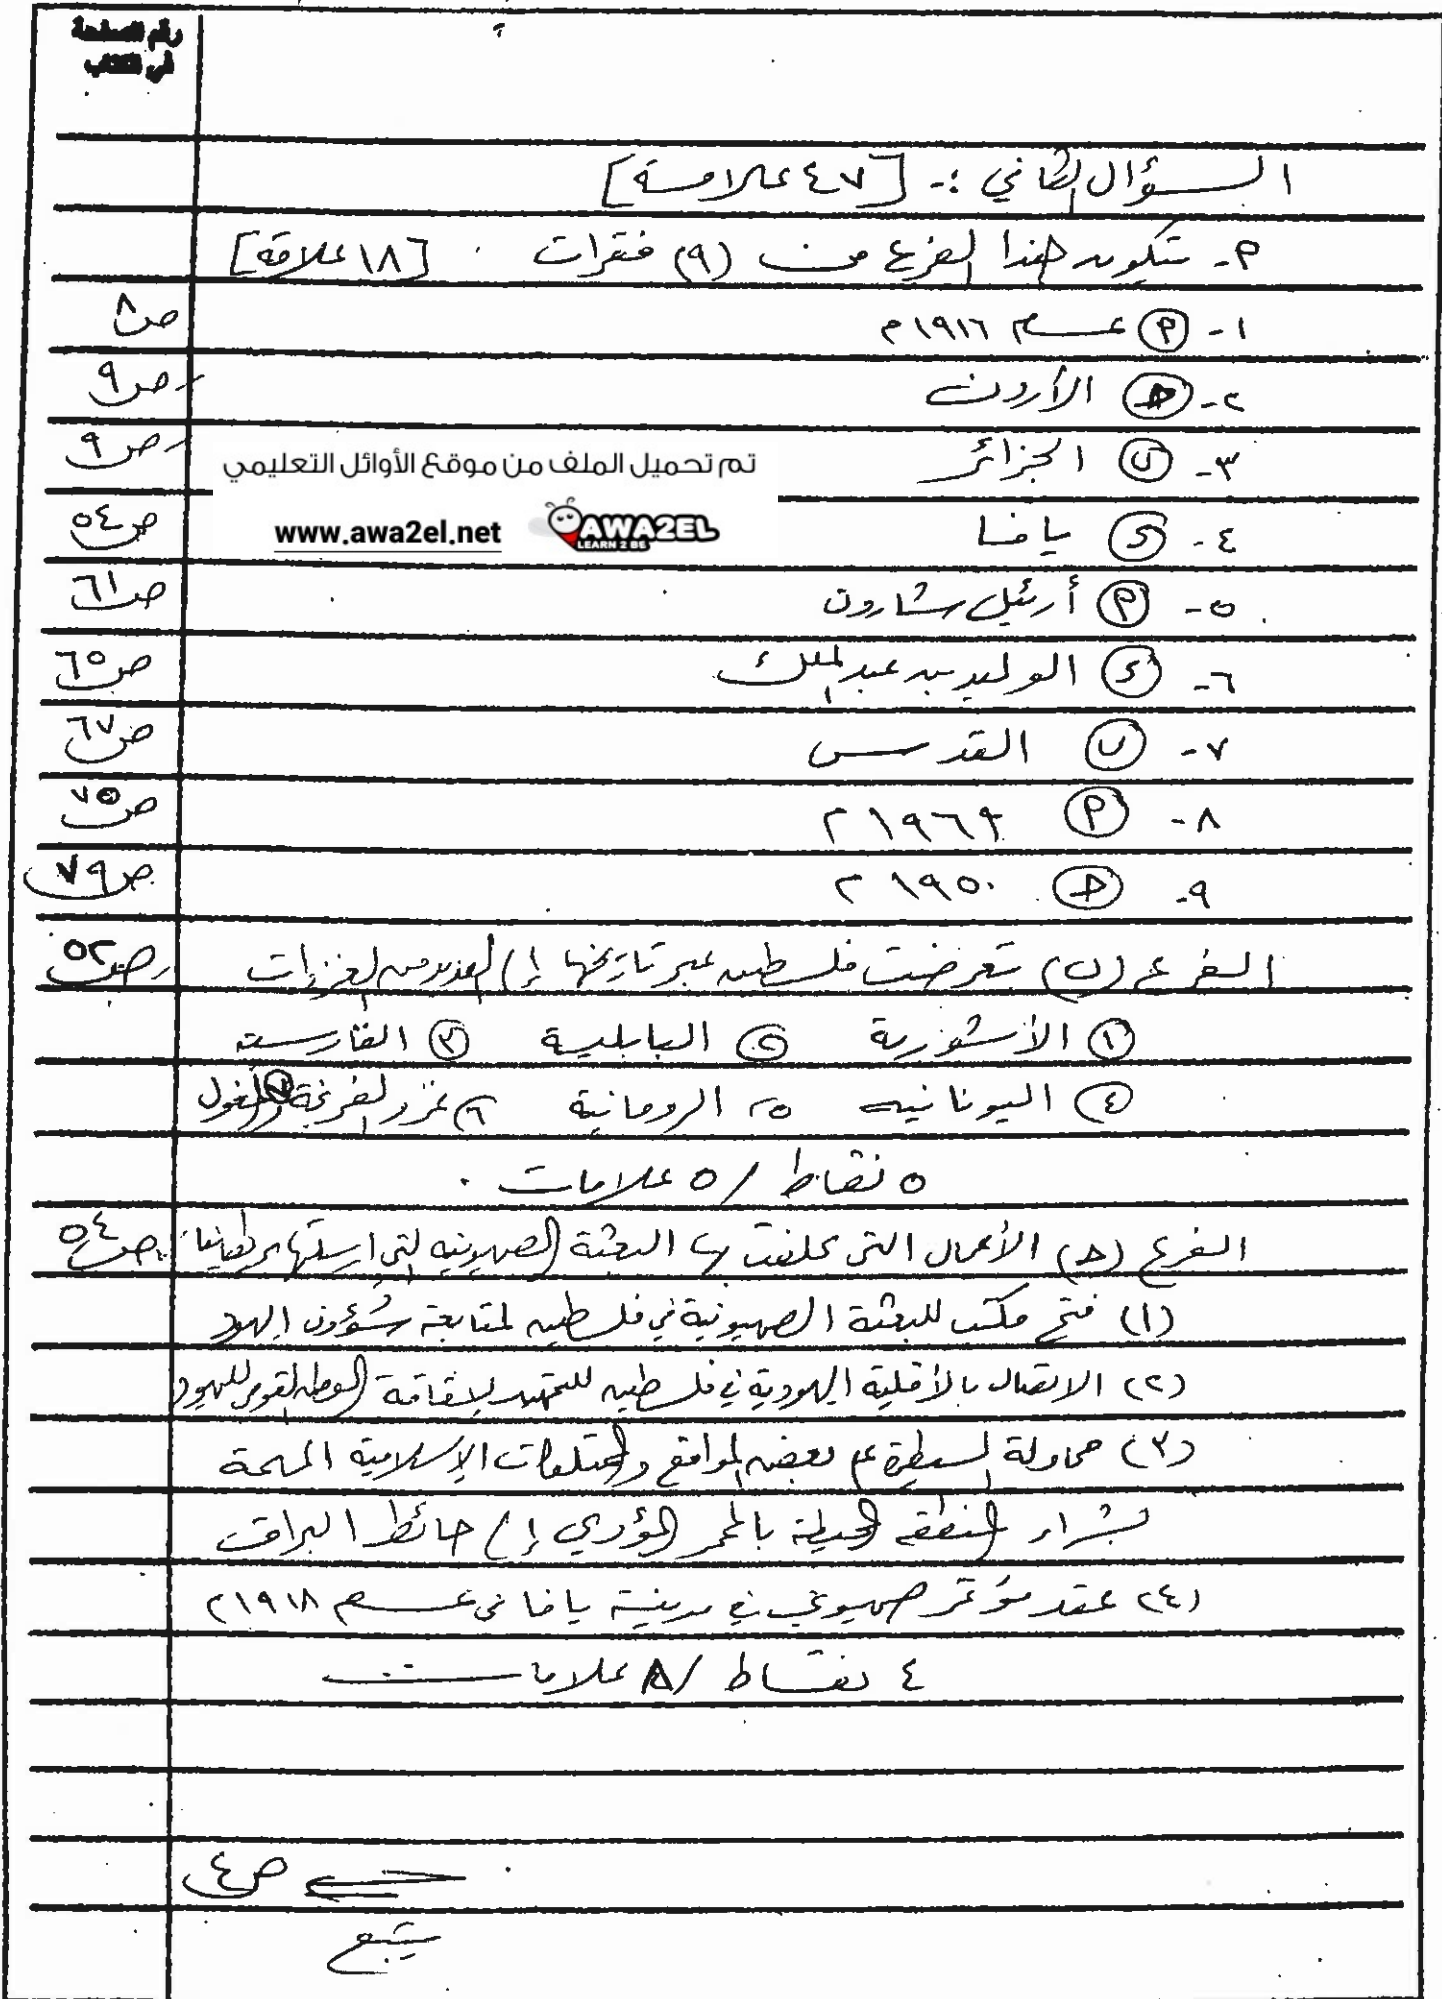 رقم الصفحة
في الكتاب
السؤال الثاني :- [٤٧ علامة]
م- تتكون هذا الفرع من (٩) فقرات [١٨ علامة]
١- (م) عام ١٩١٦م ص٨
٢- (ج) الأردن ص٩
٣- (ب) الجزائر ص٩
تم تحميل الملف من موقع الأوائل التعليمي
www.awa2el.net AWA2EL
LEARN 2 BE
٤- (د) يافا ص٥٤
٥- (م) أرئيل شارون ص٦١
٦- (د) الوليد بن عبد الملك ص٦٥
٧- (ب) القدس ص٦٧
٨- (م) ١٩٦٩م ص٧٥
٩- (ج) ١٩٥٠م ص٧٩
الفرع (ب) تعرضت فلسطين عبر تاريخها إلى العديد من الغزوات ص٥٢
(١) الأشورية (٢) البابلية (٣) الفارسية
(٤) اليونانية (٥) الرومانية (٦) غزو الفرنجة (٧) المغول
٥ نقاط / ٥ علامات
الفرع (ج) الأعمال التي كلفت بها البعثة الصهيونية التي ارسلتها بريطانيا ص٥٤
(١) فتح مكتب للبعثة الصهيونية في فلسطين لمتابعة شؤون اليهود
(٢) الاتصال بالأقلية اليهودية في فلسطين للتمهيد لإقامة الوطن القومي لليهود
(٣) محاولة السيطرة على بعض المواقع والممتلكات الإسلامية المهمة
بشراء المنطقة المحيطة بالممر المؤدي إلى حائط البراق
(٤) عقد مؤتمر صهيوني في مدينة يافا في عام ١٩١٨م
٤ نقاط / ٨ علامات
ص٤
يتبع